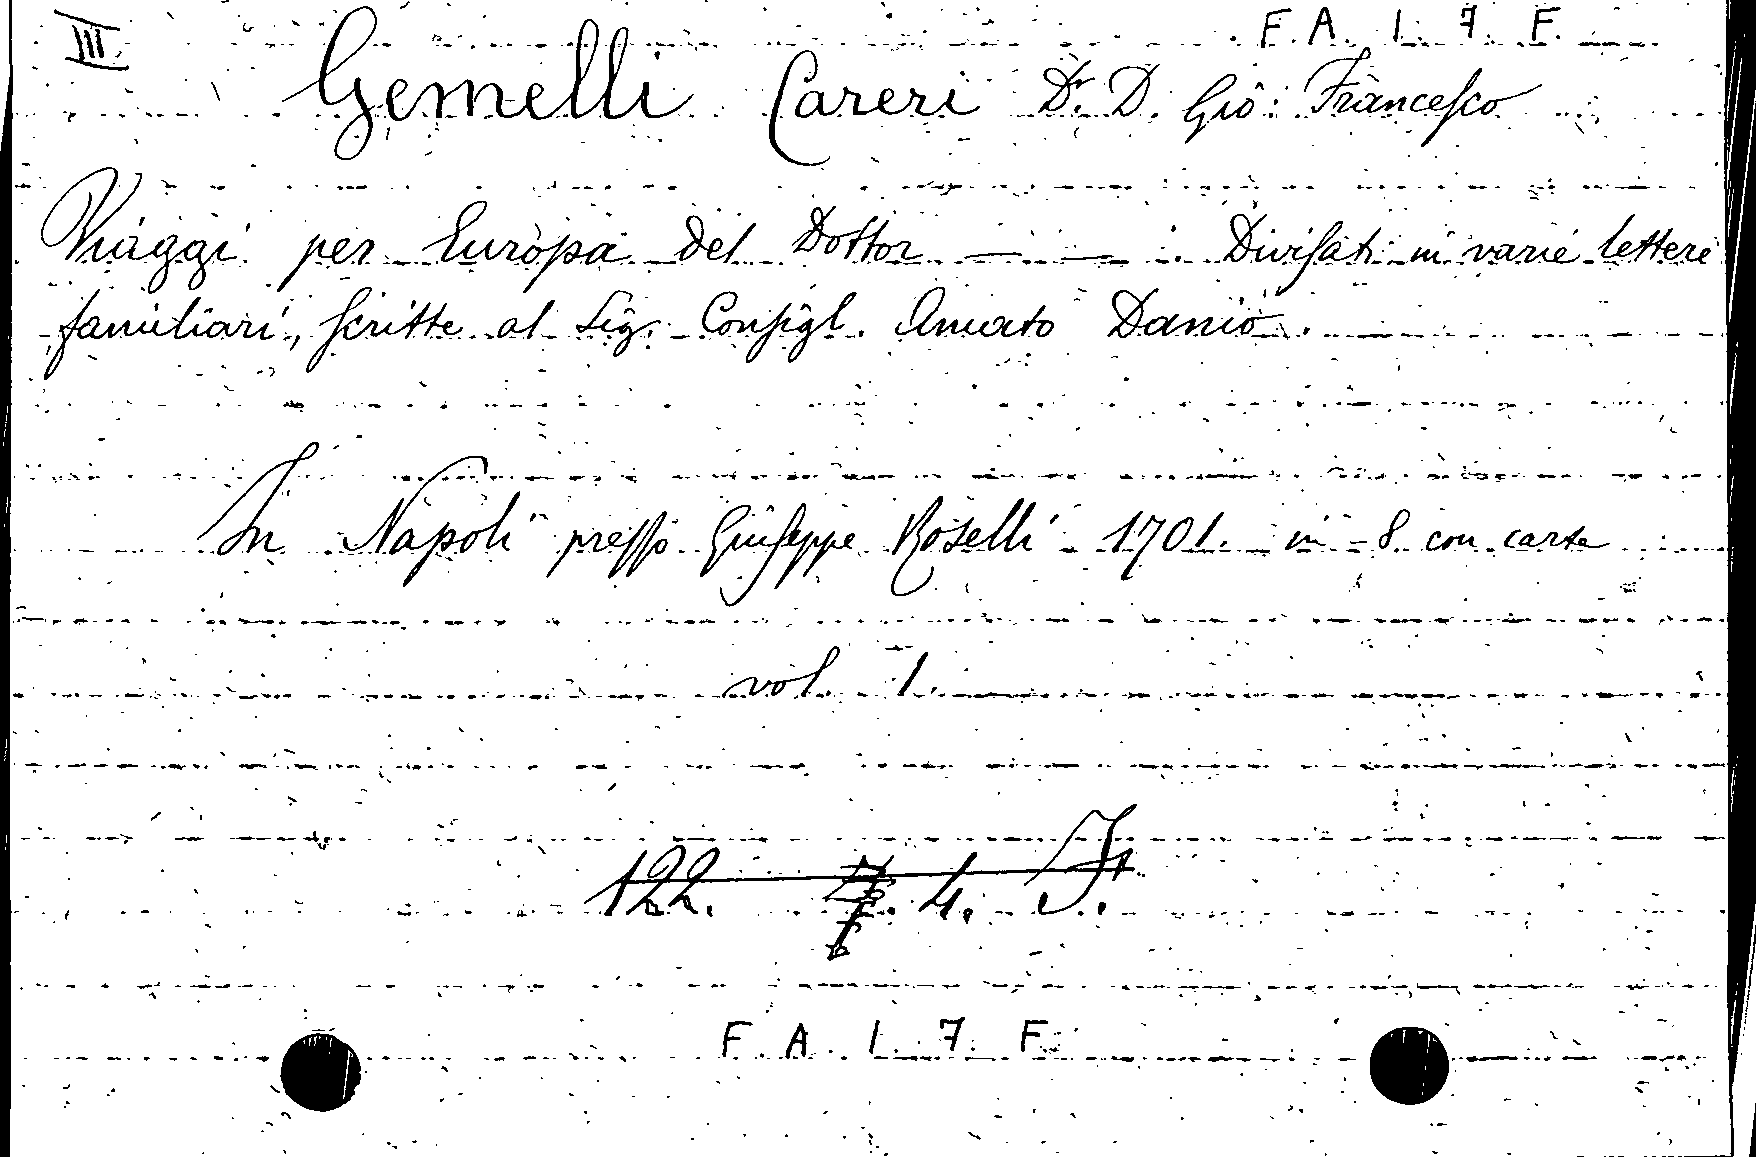 III. F. A. 1. 7. F.
Gemelli Careri Dr. D. Giô: Francesco
Viaggi per Europa del Dottor — — . Divisati in varie lettere
familiari, scritte al Sig. Consigl. Amato Danio.
In Napoli presso Giuseppe Roselli 1701. in 8 con carte
vol. 1.
122. 4. J.
F. A. 1. 7. F.